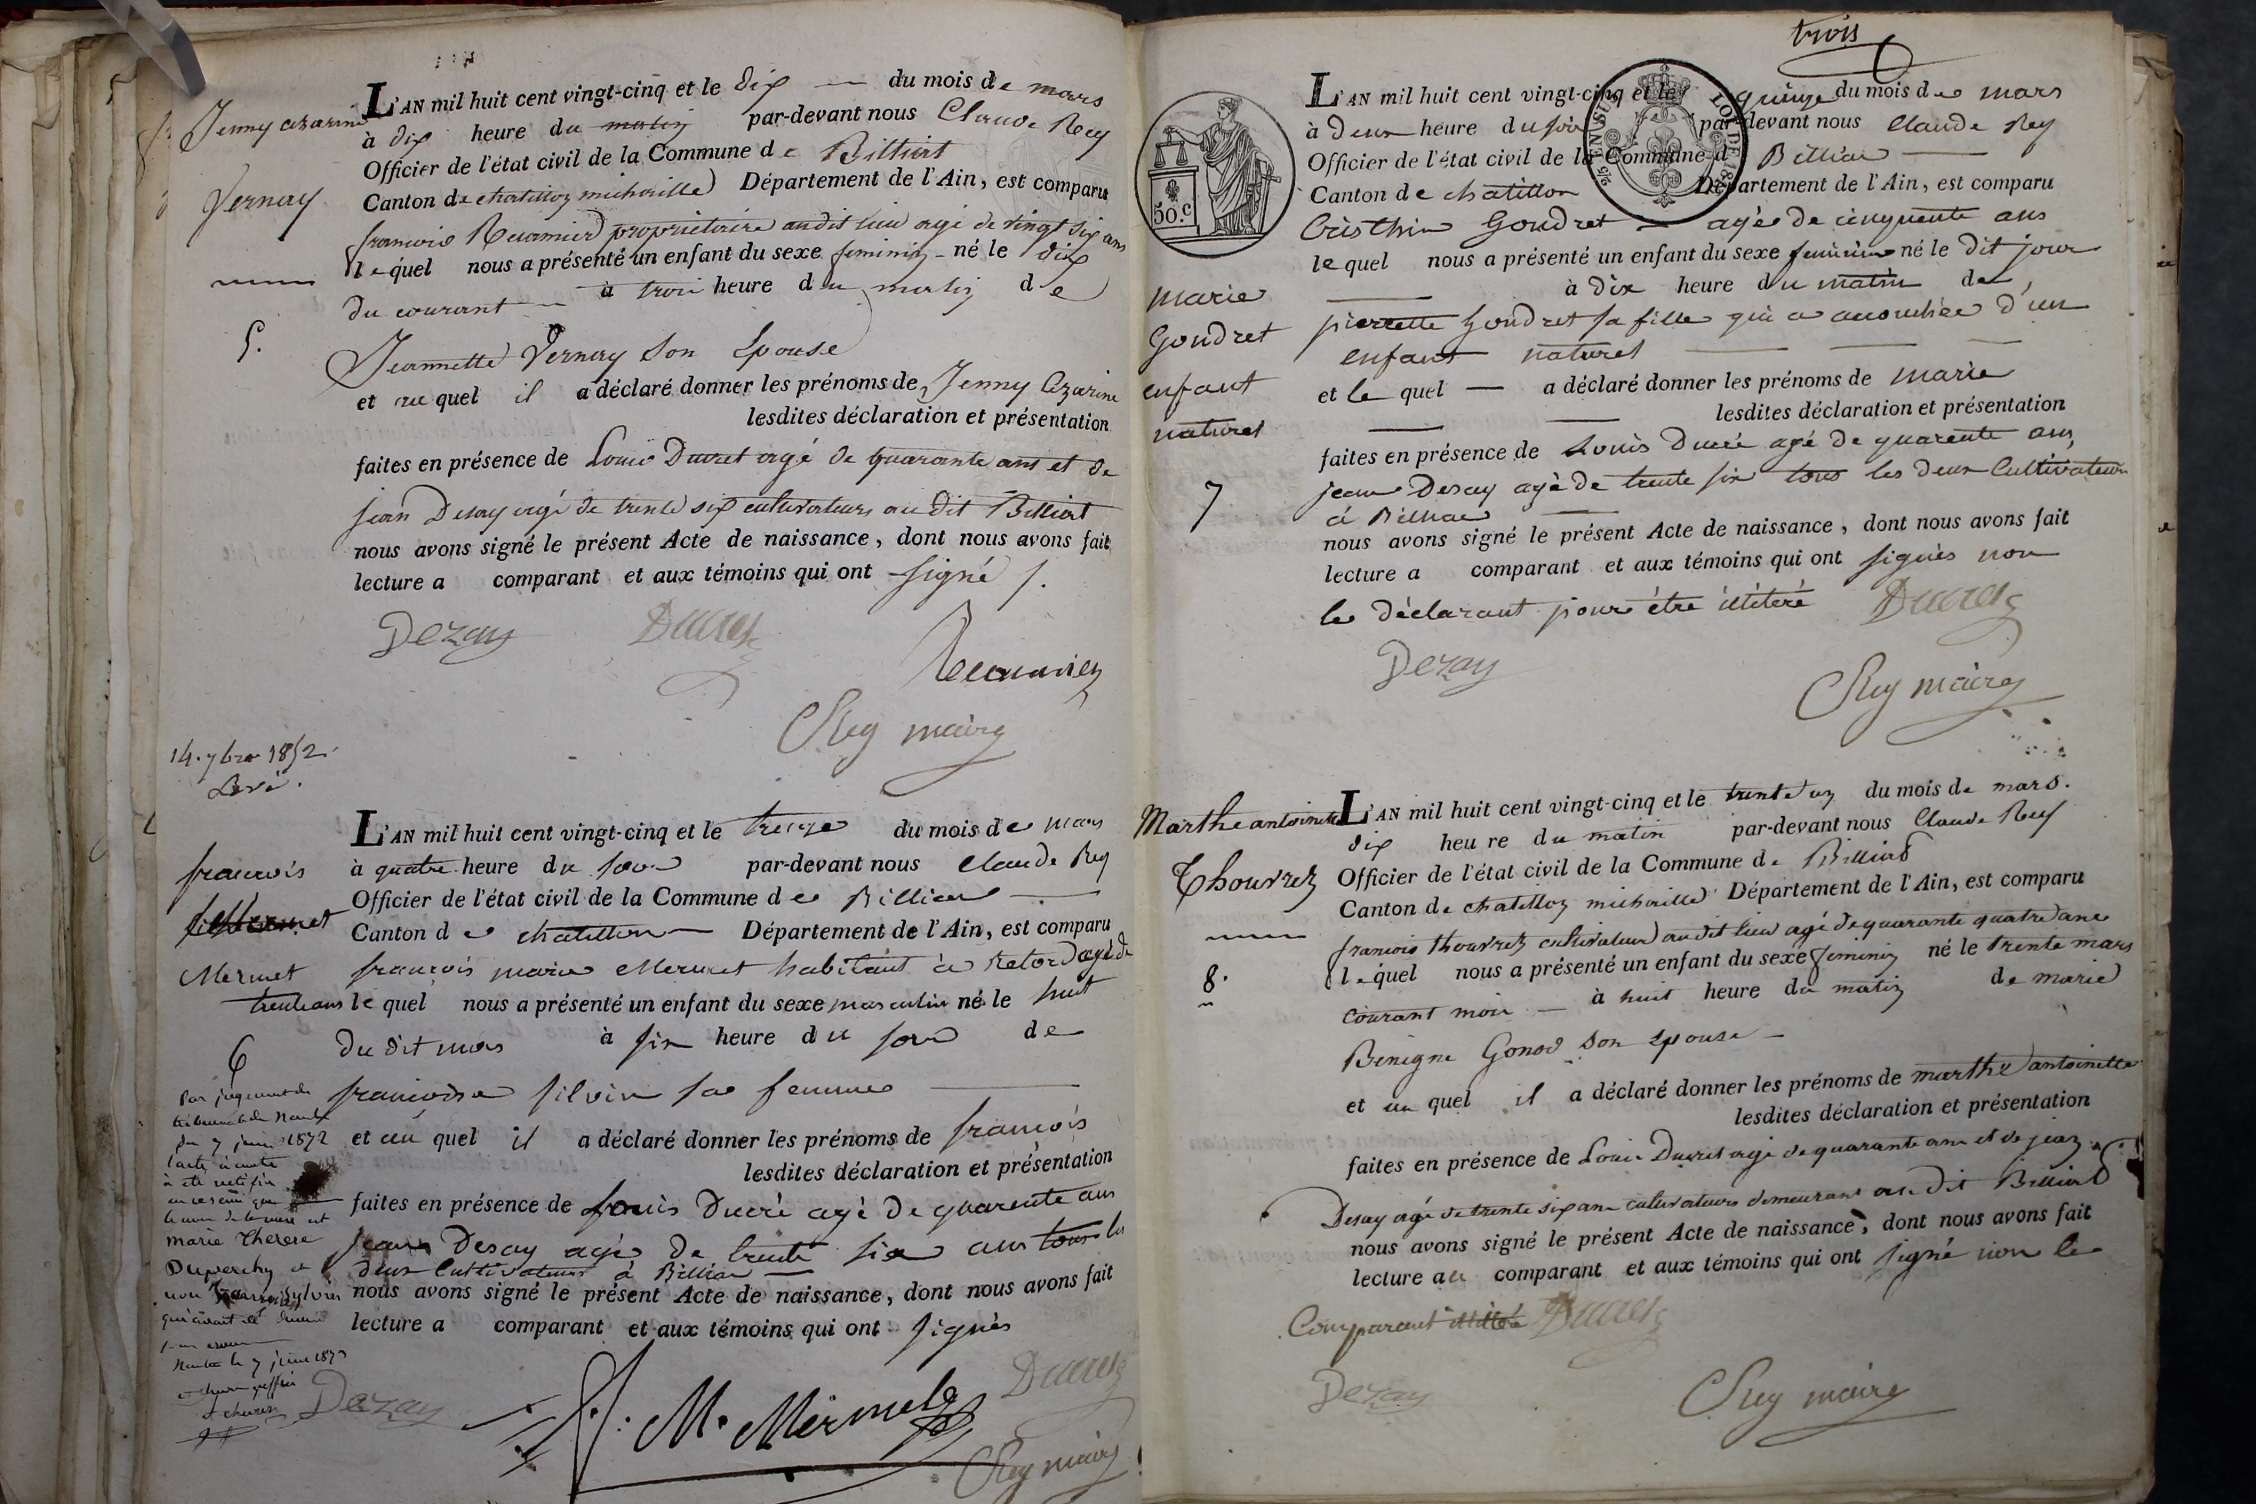 Jenny azarine
Vernay
5.
L'AN mil huit cent vingt-cinq et le dix — du mois de mars
à dix heure du matin par-devant nous Claude Rey
Officier de l'état civil de la Commune de Billiat
Canton de chatillon michaille Département de l'Ain, est comparu
francois propriétaire audit lieu agé de vingt six ans
lequel nous a présenté un enfant du sexe feminin né le dix
du courant — à trois heure du matin de
Jeannette Vernay son Epouse
et au quel il a déclaré donner les prénoms de Jenny Azarine
lesdites déclaration et présentation
faites en présence de Louis Ducret agé de quarante ans et de
jean Desay agé de trente six cultivateurs au dit Billiat
nous avons signé le présent Acte de naissance, dont nous avons fait
lecture a comparant et aux témoins qui ont signé /.
Dezay Ducret
Rey maire
14. 7bre 1852.
Levé.
francois
Mermet
6
L'AN mil huit cent vingt-cinq et le treize du mois de mars
à quatre heure du soir par-devant nous Claude Rey
Officier de l'état civil de la Commune de Billiat —
Canton de chatillon — Département de l'Ain, est comparu
françois marie Mermet habitant à Retord agé de
trente ans lequel nous a présenté un enfant du sexe masculin né le huit
du dit mois à six heure du soir de
francoise silvin sa femme —
et au quel il a déclaré donner les prénoms de francois
lesdites déclaration et présentation
faites en présence de Louis Ducré agé de quarente ans
jean Desay agé de trente six ans tous les
deux Cultivateurs à Billiat —
nous avons signé le présent Acte de naissance, dont nous avons fait
lecture a comparant et aux témoins qui ont signès
Par jugement du
tribunal de Nantua
du 7 juin 1872
l'acte ci contre
a été rectifié
en ce sens que
le nom de la mère est
Marie Therese
Duperchy et
non Sylvin
Nantua le 7 juin 1872
Dezay f. M. Mermet Ducret
Rey maire
trois
50.c
25 EN SUS LOI DE 18
Marie
Gondret
enfant
naturel
7
L'AN mil huit cent vingt-cinq et le quinze du mois de mars
à deux heure du soir par-devant nous Claude Rey
Officier de l'état civil de la Commune d Billiat —
Canton de chatillon Département de l'Ain, est comparu
Cristhin Gondret — agé de cinquente ans
lequel nous a présenté un enfant du sexe feminin né le dit jour
— à dix heure du matin de
pierrette Gondret sa fille qui a accouchée d'un
enfant naturel — — —
et le quel — a déclaré donner les prénoms de marie
— — lesdites déclaration et présentation
faites en présence de Louis Ducré agé de quarente ans,
jean Desay agé de trente six tous les deux Cultivateurs
à Billiat —
nous avons signé le présent Acte de naissance, dont nous avons fait
lecture a comparant et aux témoins qui ont signès non
le déclarant pour être illitéré Ducret
Dezay
Rey maire
Marthe antoinette
Thouvrez
8.
L'AN mil huit cent vingt-cinq et le trente un du mois de mars.
dix heure du matin par-devant nous Claude Rey
Officier de l'état civil de la Commune de Billiat
Canton de chatillon michaille Département de l'Ain, est comparu
francois thouvrez cultivateur audit lieu agé de quarante quatre ans
lequel nous a présenté un enfant du sexe feminin né le trente mars
courant mois — à huit heure du matin de marie
Benigne Gonod son epouse —
et au quel il a déclaré donner les prénoms de marthe antoinette
lesdites déclaration et présentation
faites en présence de Louis Ducret agé de quarante ans et de jean
Desay agé de trente six ans cultivateurs demeurant au dit Billiat
nous avons signé le présent Acte de naissance, dont nous avons fait
lecture au comparant et aux témoins qui ont signé non le
Comparant illitéré Ducret
Dezay
Rey maire